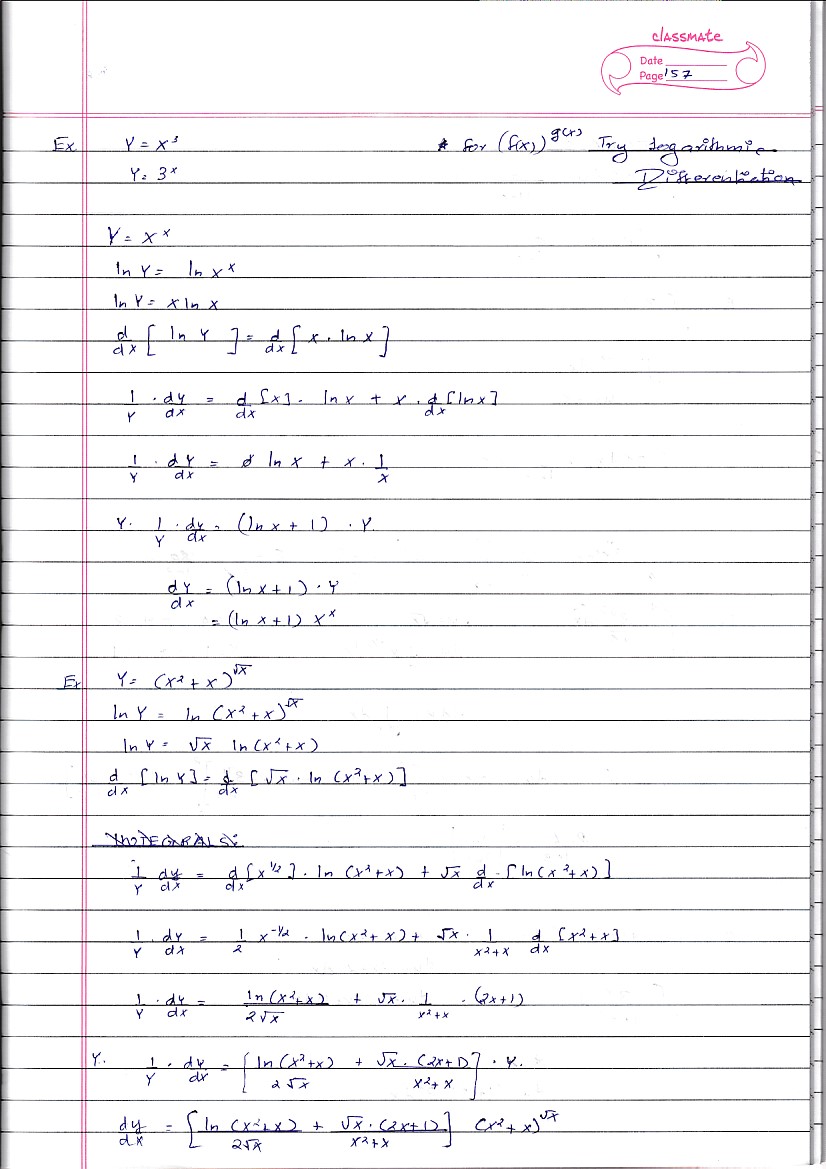 classmate
Date
Page 157
Ex Y = x³ * for (f(x))^g(x) Try Logarithmic
Y = 3^x Differentiation
Y = x^x
ln Y = ln x^x
ln Y = x ln x
d/dx [ ln Y ] = d/dx [ x · ln x ]
1/Y · dy/dx = d/dx [x] · ln x + x · d/dx [ln x]
1/Y · dY/dx = ln x + x · 1/x
Y · 1/Y · dy/dx = (ln x + 1) · Y
dY/dx = (ln x + 1) · Y
= (ln x + 1) x^x
Ex Y = (x² + x)^√x
ln Y = ln (x² + x)^√x
ln Y = √x ln (x² + x)
d/dx [ln Y] = d/dx [√x · ln (x² + x)]
INTEGRALS:
1/Y dy/dx = d/dx [x^1/2] · ln (x² + x) + √x d/dx · [ln (x² + x)]
1/Y · dy/dx = 1/2 x^-1/2 · ln (x² + x) + √x · 1/x²+x d/dx [x² + x]
1/Y · dy/dx = ln (x² + x)/2√x + √x · 1/x²+x · (2x+1)
Y · 1/Y · dy/dx = [ ln (x² + x)/2√x + √x · (2x+1)/x²+x ] · Y.
dy/dx = [ ln (x² + x)/2√x + √x · (2x+1)/x²+x ] (x² + x)^√x